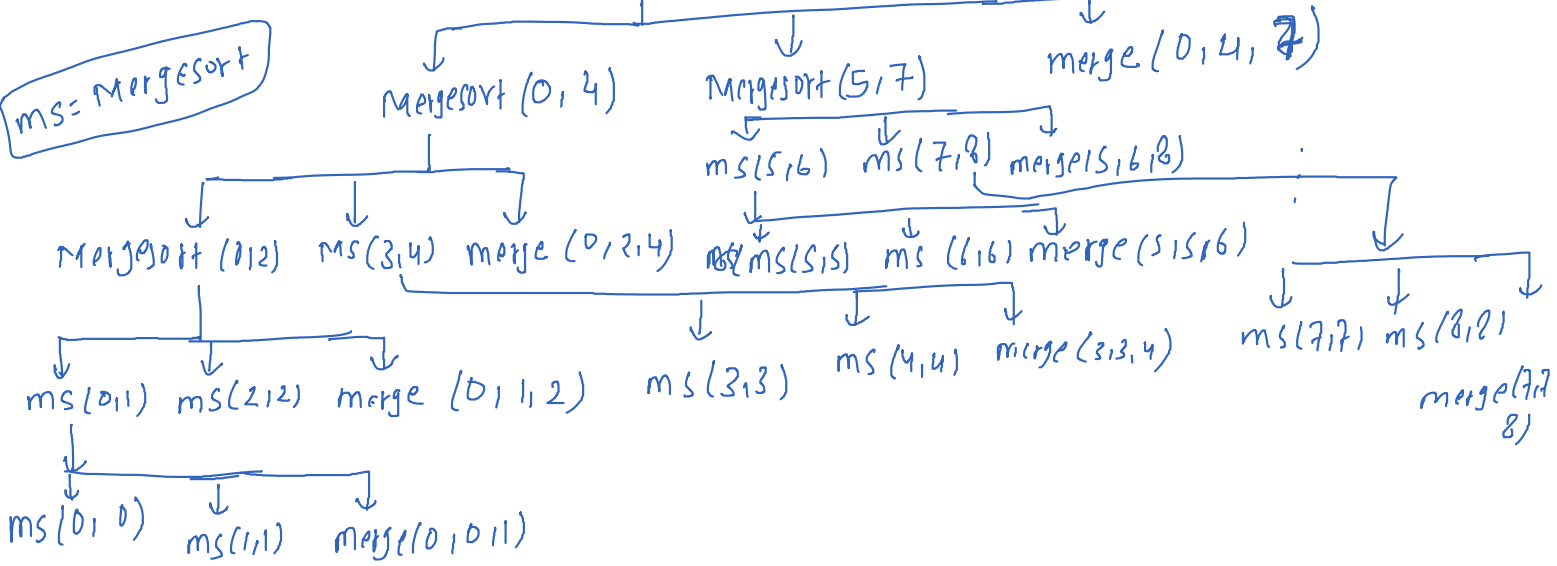 ms = Mergesort
merge (0, 4, 7)
Mergesort (0, 4)
Mergesort (5, 7)
ms (5, 6)
ms (7, 8)
merge (5, 6, 8)
Mergesort (0, 2)
Ms (3, 4)
merge (0, 2, 4)
ms (5, 5)
ms (6, 6)
merge (5, 5, 6)
ms (7, 7)
ms (8, 8)
ms (0, 1)
ms (2, 2)
merge (0, 1, 2)
ms (3, 3)
ms (4, 4)
merge (3, 3, 4)
merge (7, 7
8)
ms (0, 0)
ms (1, 1)
merge (0, 0, 1)